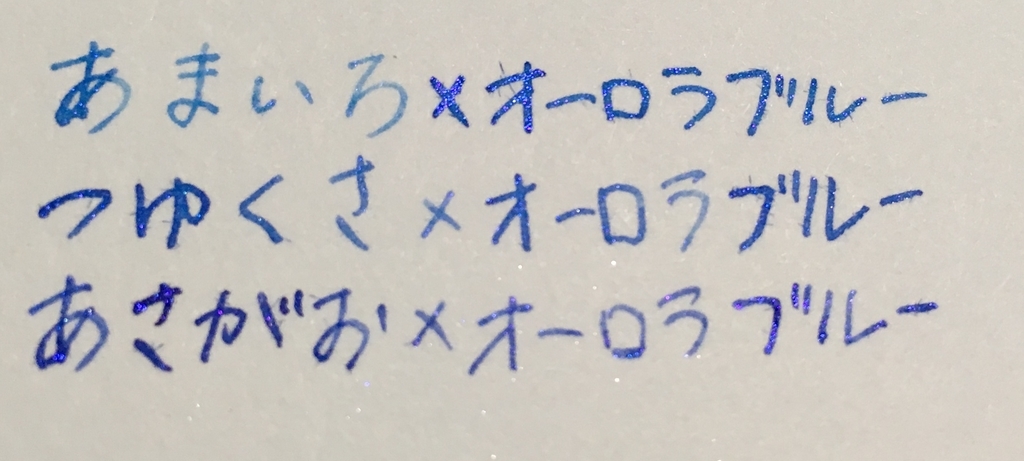 あまいろ×オーロラブルー
つゆくさ×オーロラブルー
あさがお×オーロラブルー